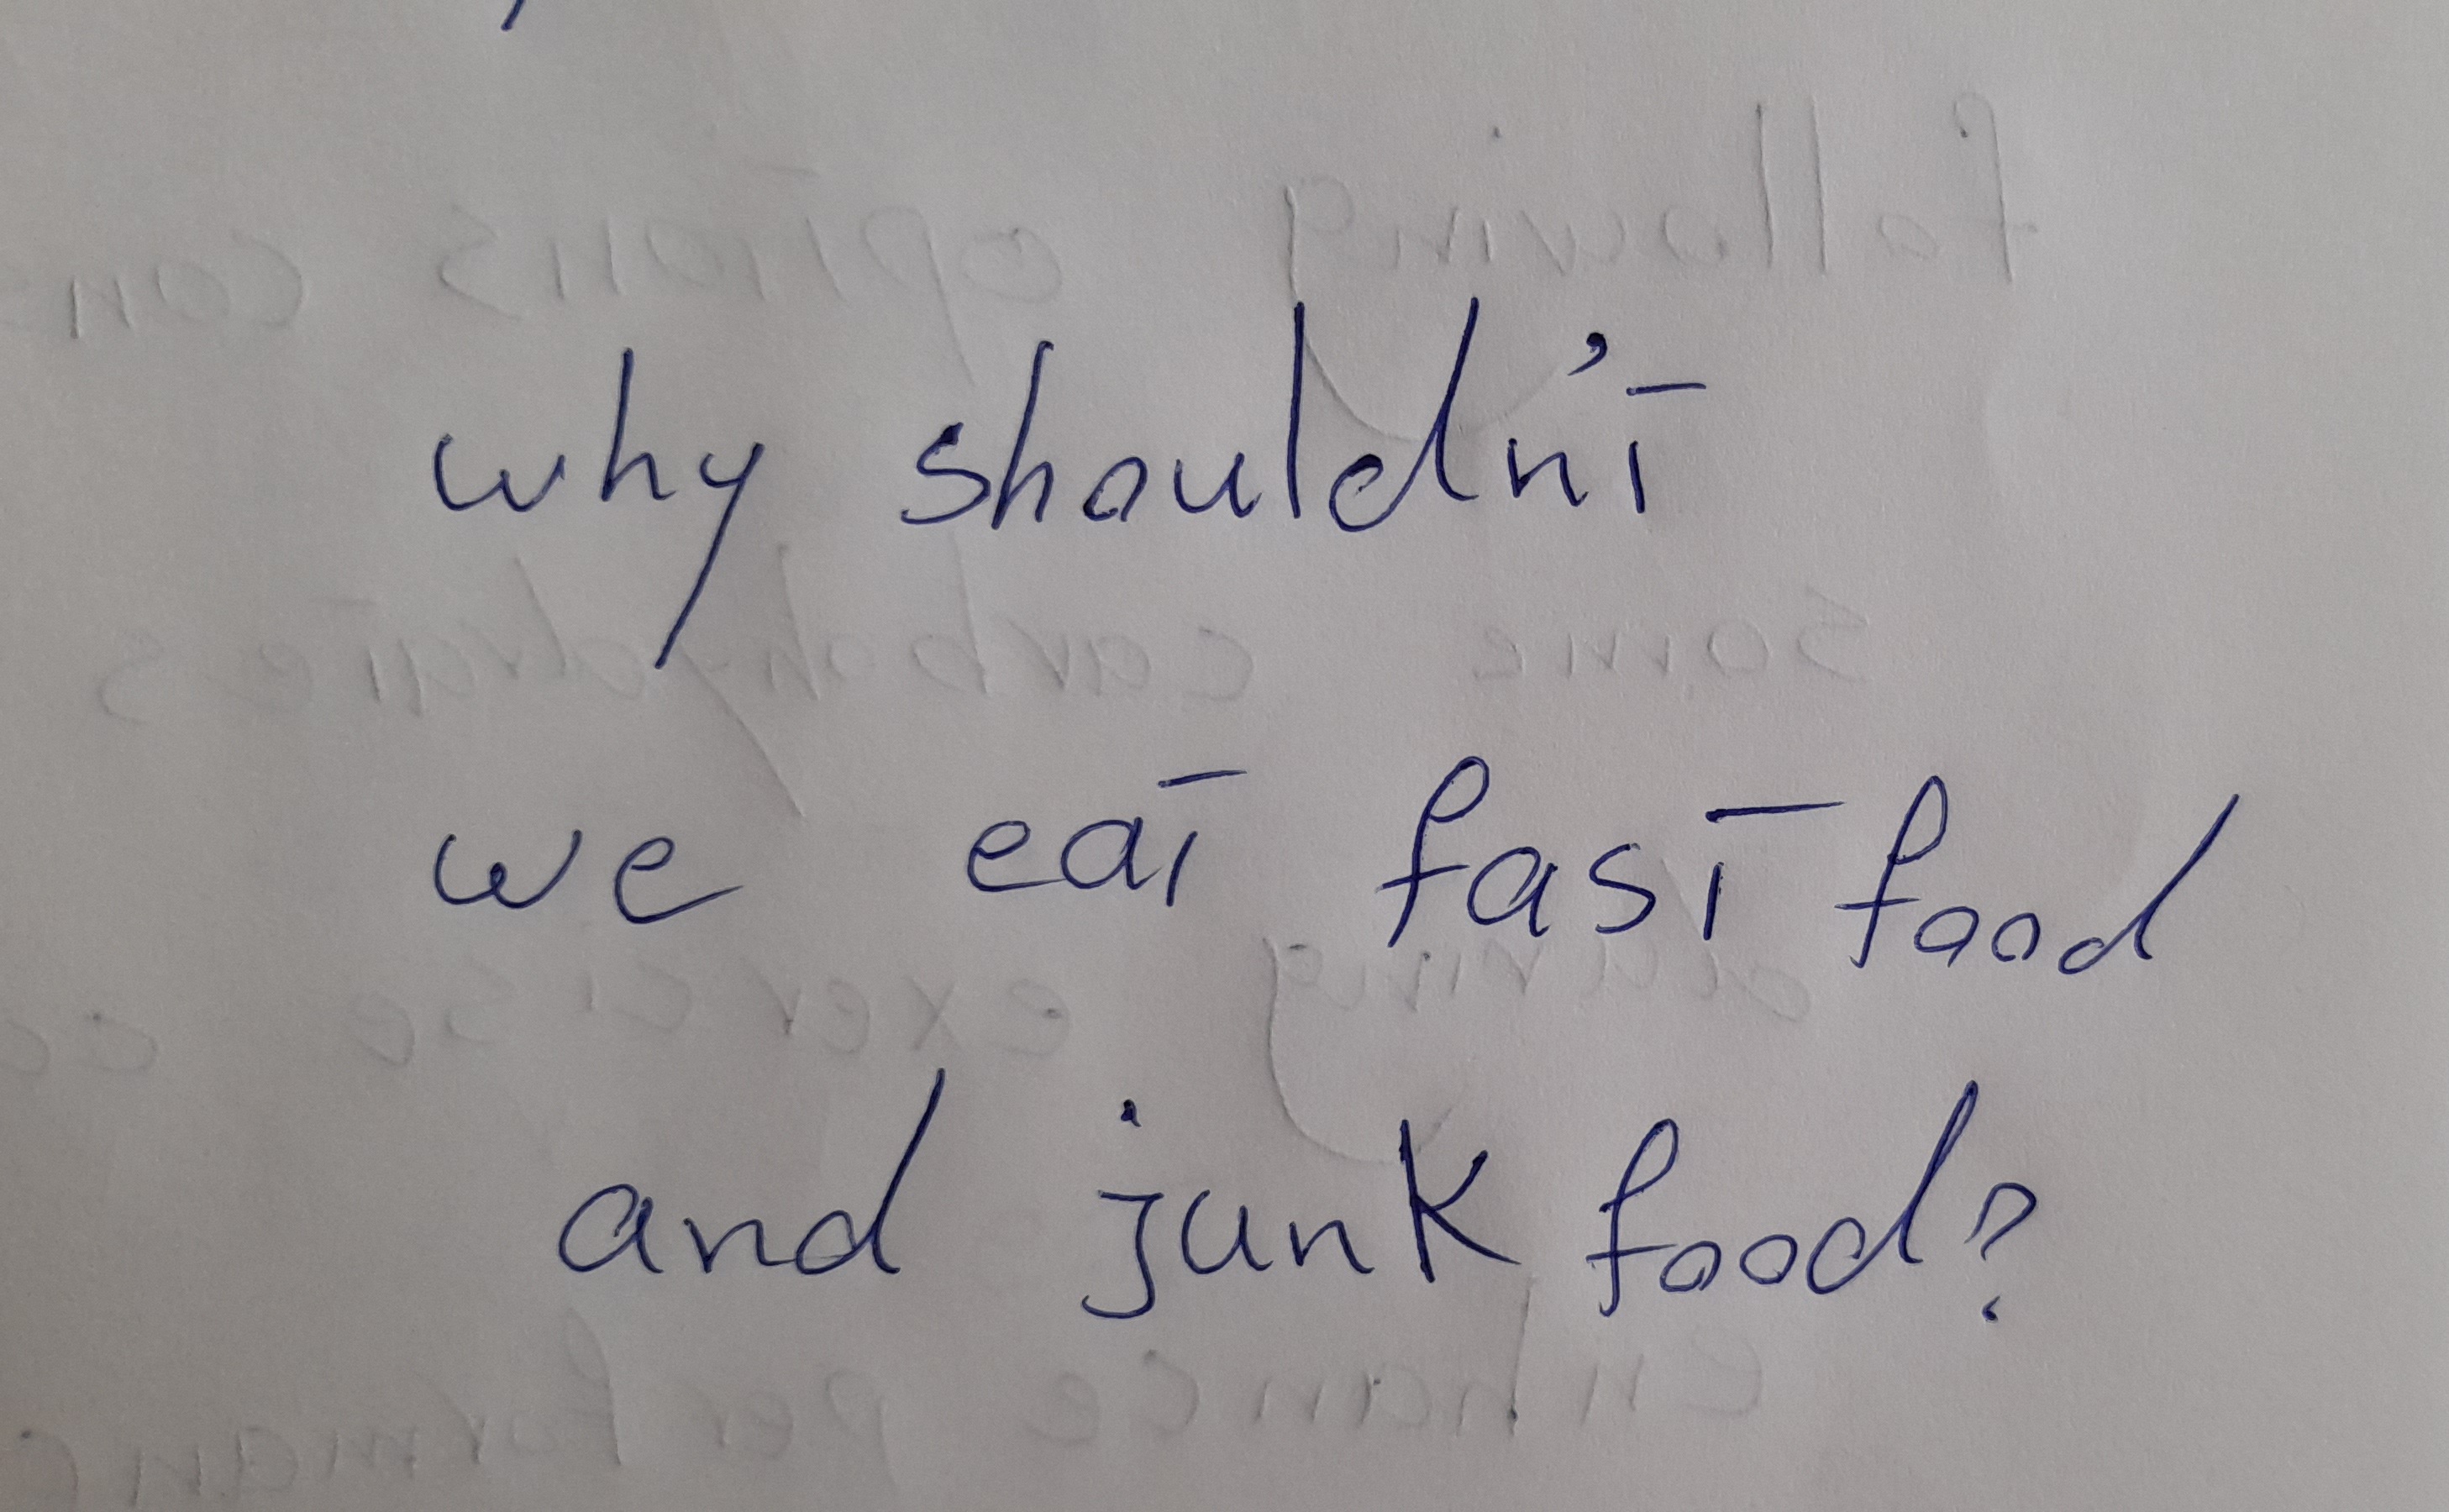 why shouldn't
we eat fast food
and junk food?